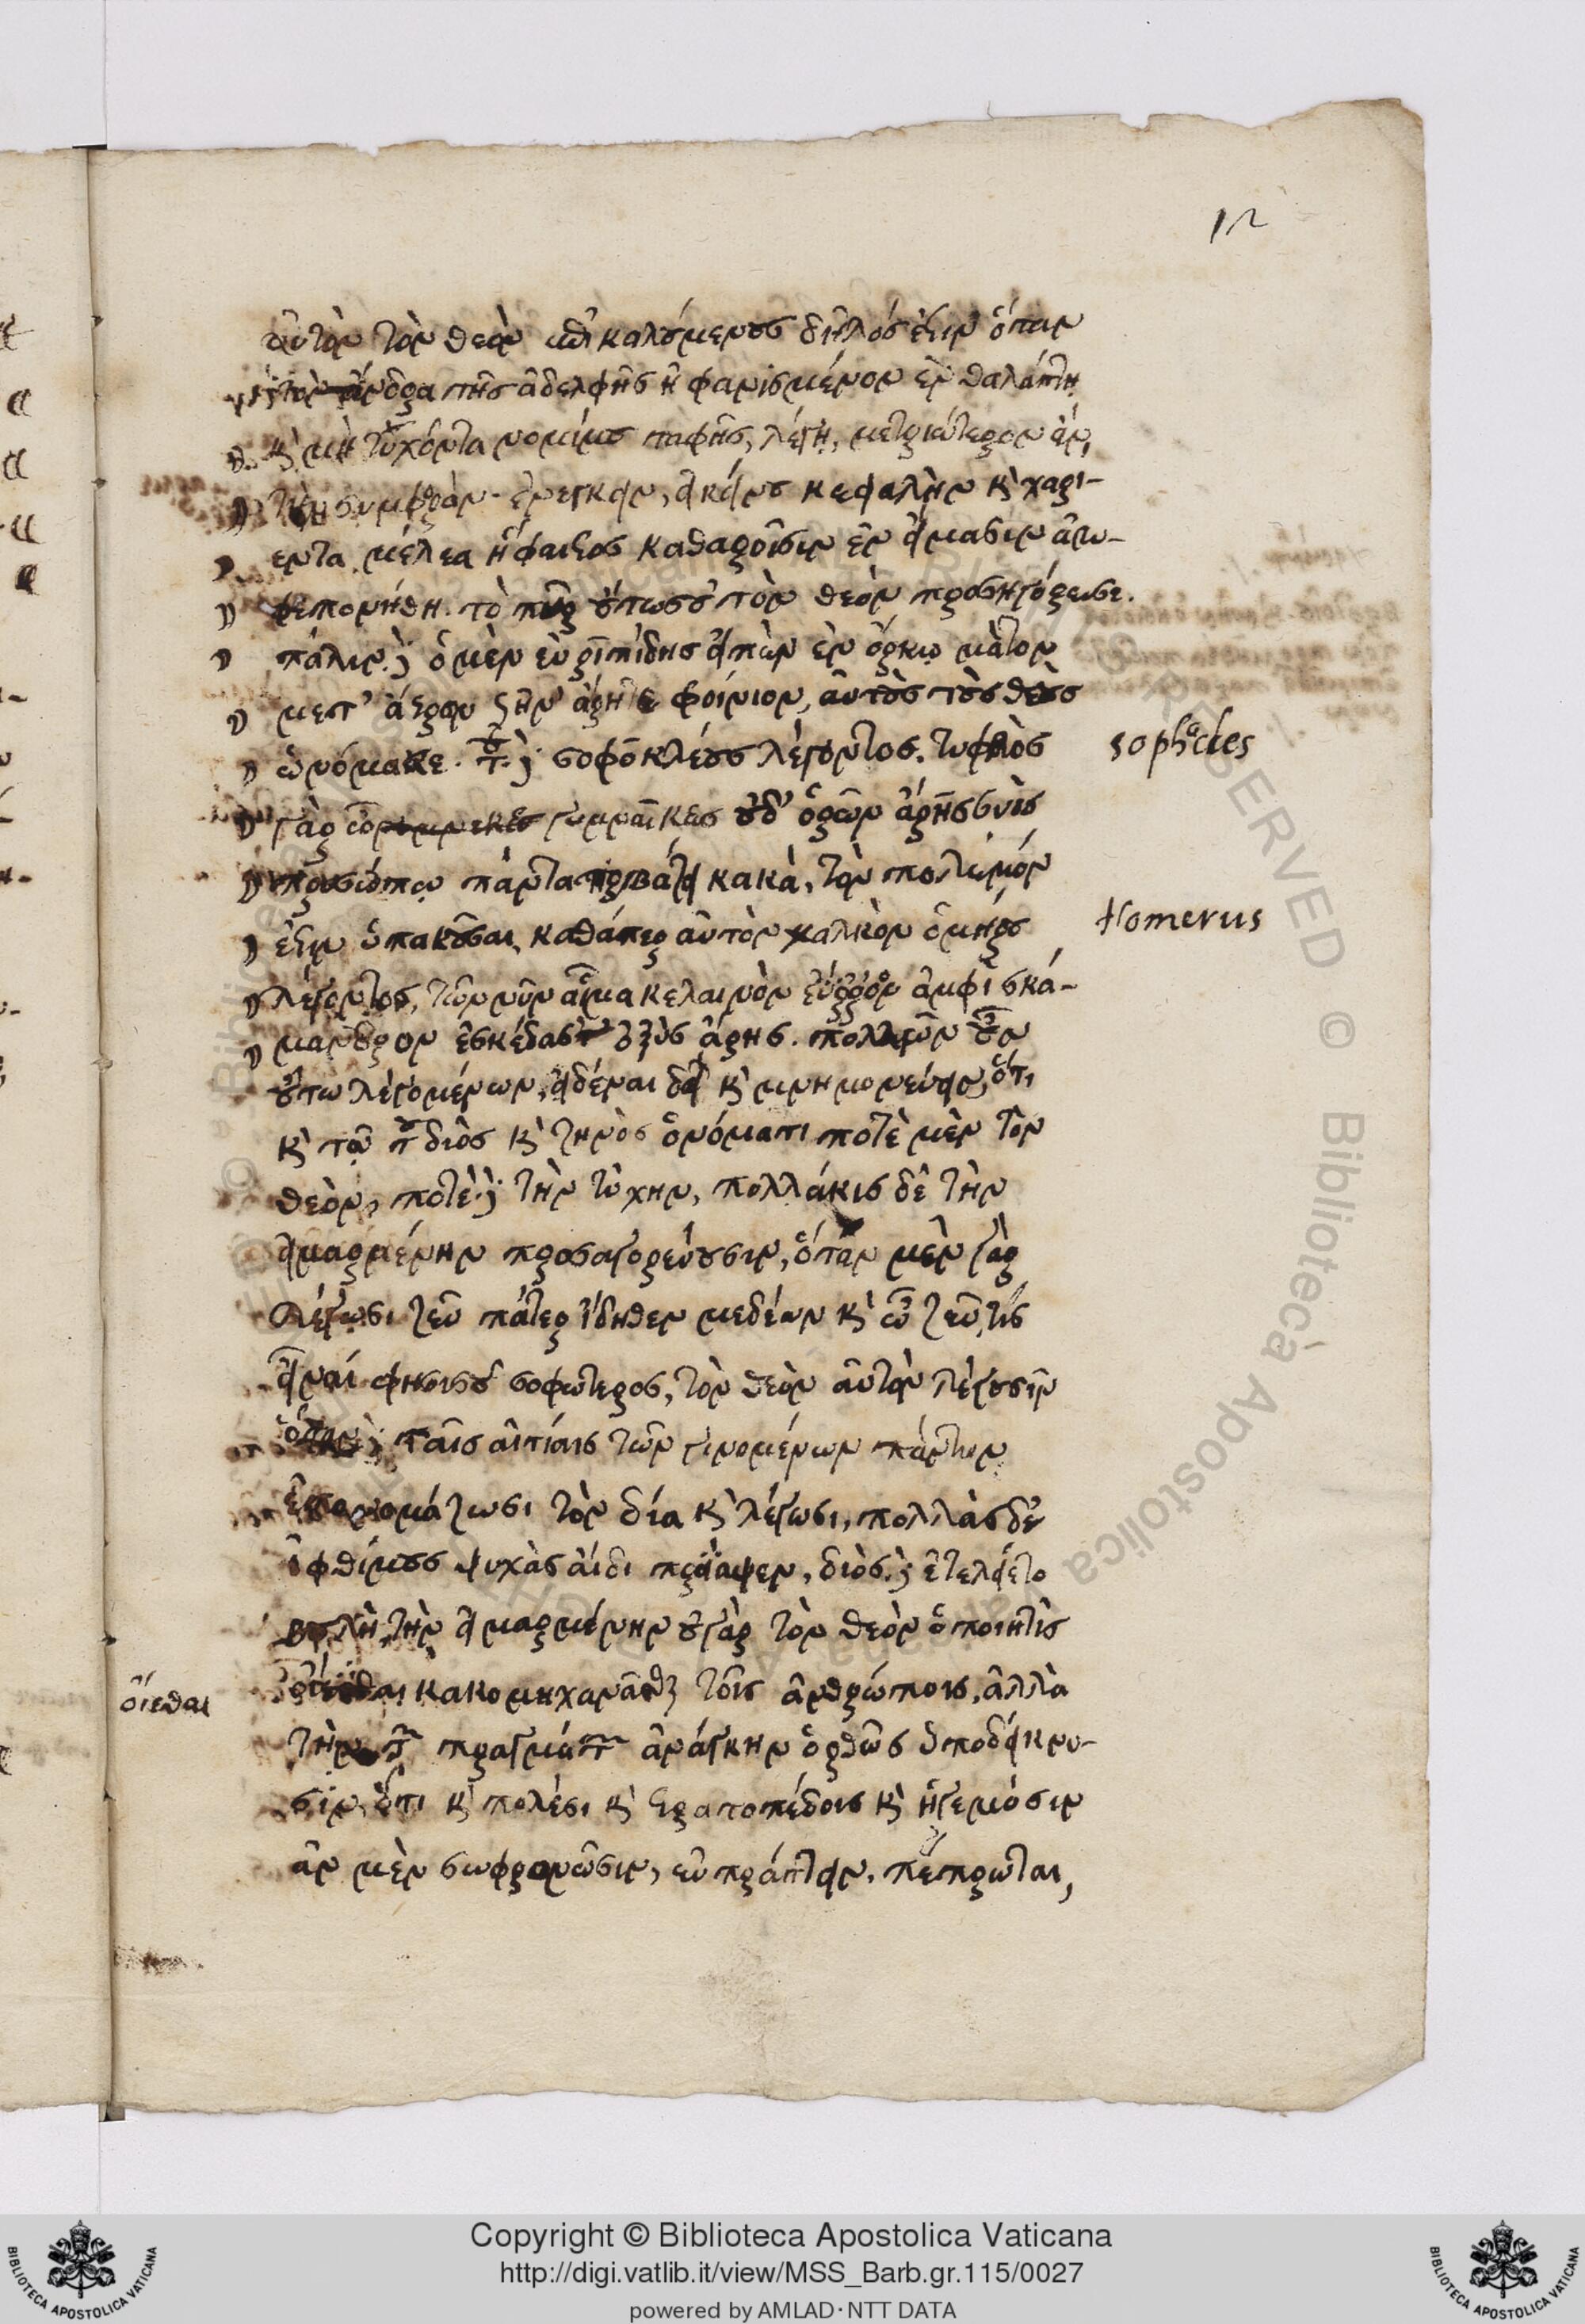 12
αὐτὸν τὸν θεὸν ἐπικαλούμενος δῆλός ἐστιν ὅταν
δὲ τὸν ἄνδρα τῆς ἀδελφῆς ἠφανισμένον ἐν θαλάττῃ
κὶ μὴ τυχόντα νομίμου ταφῆς, λέγῃ, μετριώτερον ἂν
τὴν συμφορὰν ἐνεγκεῖν, εἰ κείνου κεφαλὴν κὶ χαρί-
εντα μέλεα ἥφαιστος καθαροῖσιν ἐν εἵμασιν ἀμ-
φεπονήθη. τὸ πῦρ οὕτως οὐ τὸν θεὸν προσηγόρευσε.
πάλιν δὲ ὁ μὲν εὐριπίδης εἰπὼν ἐν ὅρκῳ μὰ τὸν
μετ' ἄστρων ζῆν' ἄρητε φοίνιον, αὐτοὺς τοὺς θεοὺς
ὠνόμακε. τοῦ δὲ σοφοκλέους λέγοντος. τυφλὸς
sophocles
γὰρ ὦ γυναῖκες οὐδ' ὁρῶν ἄρης συὸς
προσώπῳ πάντα τυρβάζει κακὰ, τὸν πόλεμόν
ἐστιν ὑπακοῦσαι, καθάπερ αὐτὸν χαλκὸν ὁμήρου
Homerus
λέγοντος, τῶν νῦν αἷμα κελαινὸν ἐύρροον ἀμφὶ σκά-
μανδρον ἐσκέδασεν ὀξὺς ἄρης. πολλῶν οὖν
οὕτω λεγομένων, εἰδέναι δεῖ κὶ μνημονεύειν, ὅτι
κὶ τῷ τοῦ διὸς κὶ ζηνὸς ὀνόματι ποτὲ μὲν τὸν
θεὸν, ποτὲ δὲ τὴν τύχην, πολλάκις δὲ τὴν
εἱμαρμένην προσαγορεύουσιν, ὅταν μὲν γὰρ
λέγωσι ζεῦ πάτερ ἴδηθεν μεδέων κὶ ὦ ζεῦ τίς
εἶναί φησι σοῦ σοφώτερος, τὸν θεὸν αὐτὸν λέγουσιν
ὅταν δὲ ταῖς αἰτίαις τῶν γινομένων πάντων
ἐπονομάζωσι τὸν δία κὶ λέγωσι, πολλὰς δ'
ἰφθίμους ψυχὰς ἄιδι προΐαψεν, διὸς δὲ ἐτελείετο
βουλὴ, τὴν εἱμαρμένην οὐ γὰρ τὸν θεὸν ὁ ποιητὴς
οἴεσθαι
οἴεσθαι κακομηχανᾶσθαι τοῖς ἀνθρώποις, ἀλλὰ
τὴν τῶν πραγμάτων ἀνάγκην ὀρθῶς ὑποδείκνυ-
σιν, ὅτι κὶ πόλεσι κὶ στρατοπέδοις κὶ ἡγεμόσιν
ἂν μὲν σωφρονῶσιν, εὖ πράττειν πέπρωται,
Copyright © Biblioteca Apostolica Vaticana
http://digi.vatlib.it/view/MSS_Barb.gr.115/0027
powered by AMLAD·NTT DATA
BIBLIOTECA APOSTOLICA VATICANA
BIBLIOTECA APOSTOLICA VATICANA